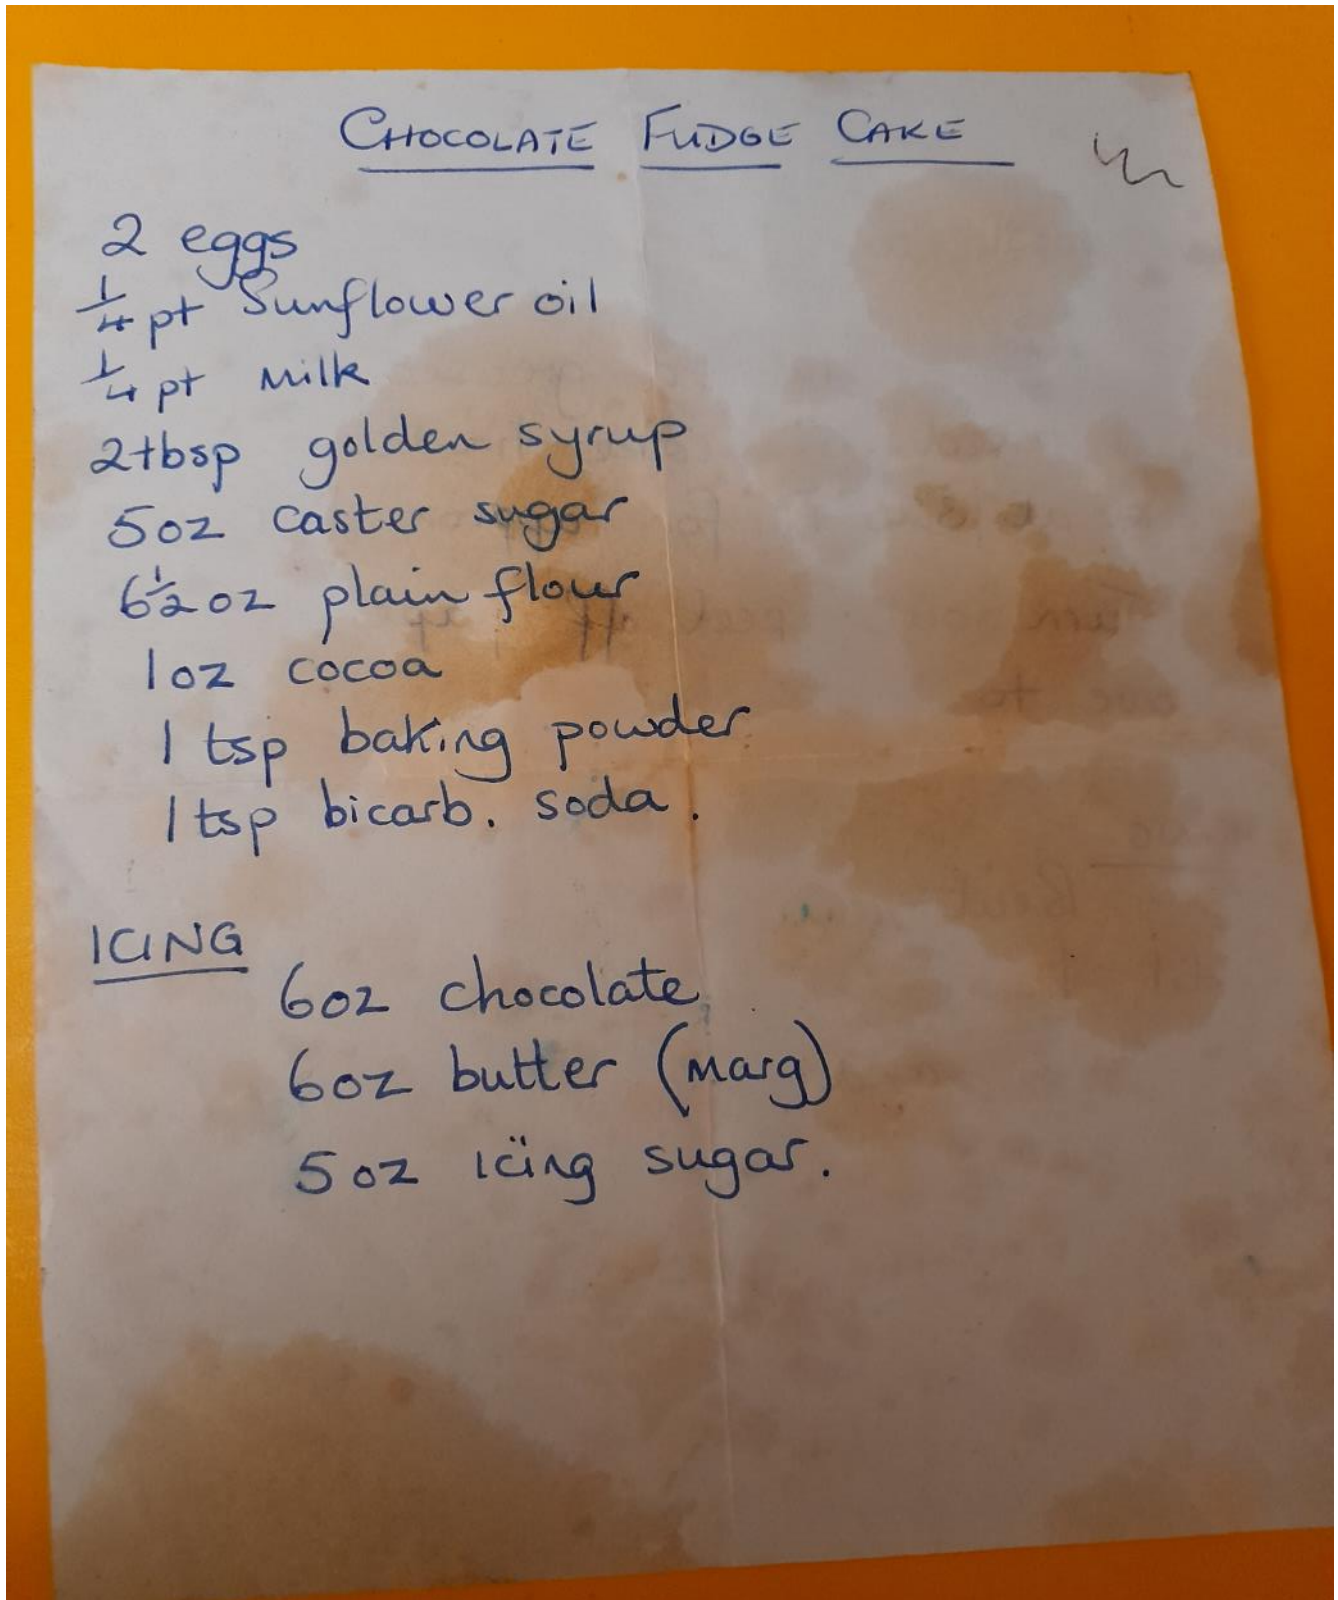 CHOCOLATE FUDGE CAKE
2 eggs
1/4 pt Sunflower oil
1/4 pt Milk
2tbsp golden syrup
5oz caster sugar
6 1/2 oz plain flour
1oz cocoa
1 tsp baking powder
1tsp bicarb. soda.
ICING
6oz chocolate
6oz butter (Marg)
5oz icing sugar.